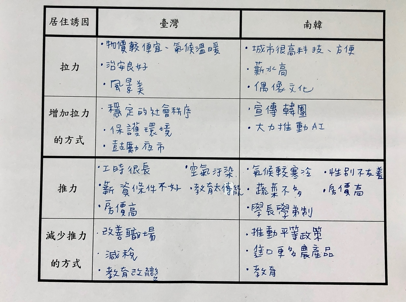 居住誘因 臺灣 南韓
拉力
・物價較便宜、氣候溫暖
・治安良好
・風景美
・城市很高科技、方便
・薪水高
・偶像文化
增加拉力
的方式
・穩定的社會秩序
・保護環境
・鼓勵夜市
・宣傳韓團
・大力推動AI
推力
・工時很長 ・空氣汙染
・薪資條件不好 ・教育太傳統
・房價高
・氣候較寒冷 ・性別不友善
・蔬菜不多 ・房價高
・學長學弟制
減少推力
的方式
・改善職場
・減稅
・教育改變
・推動平等政策
・進口更多農產品
・教育